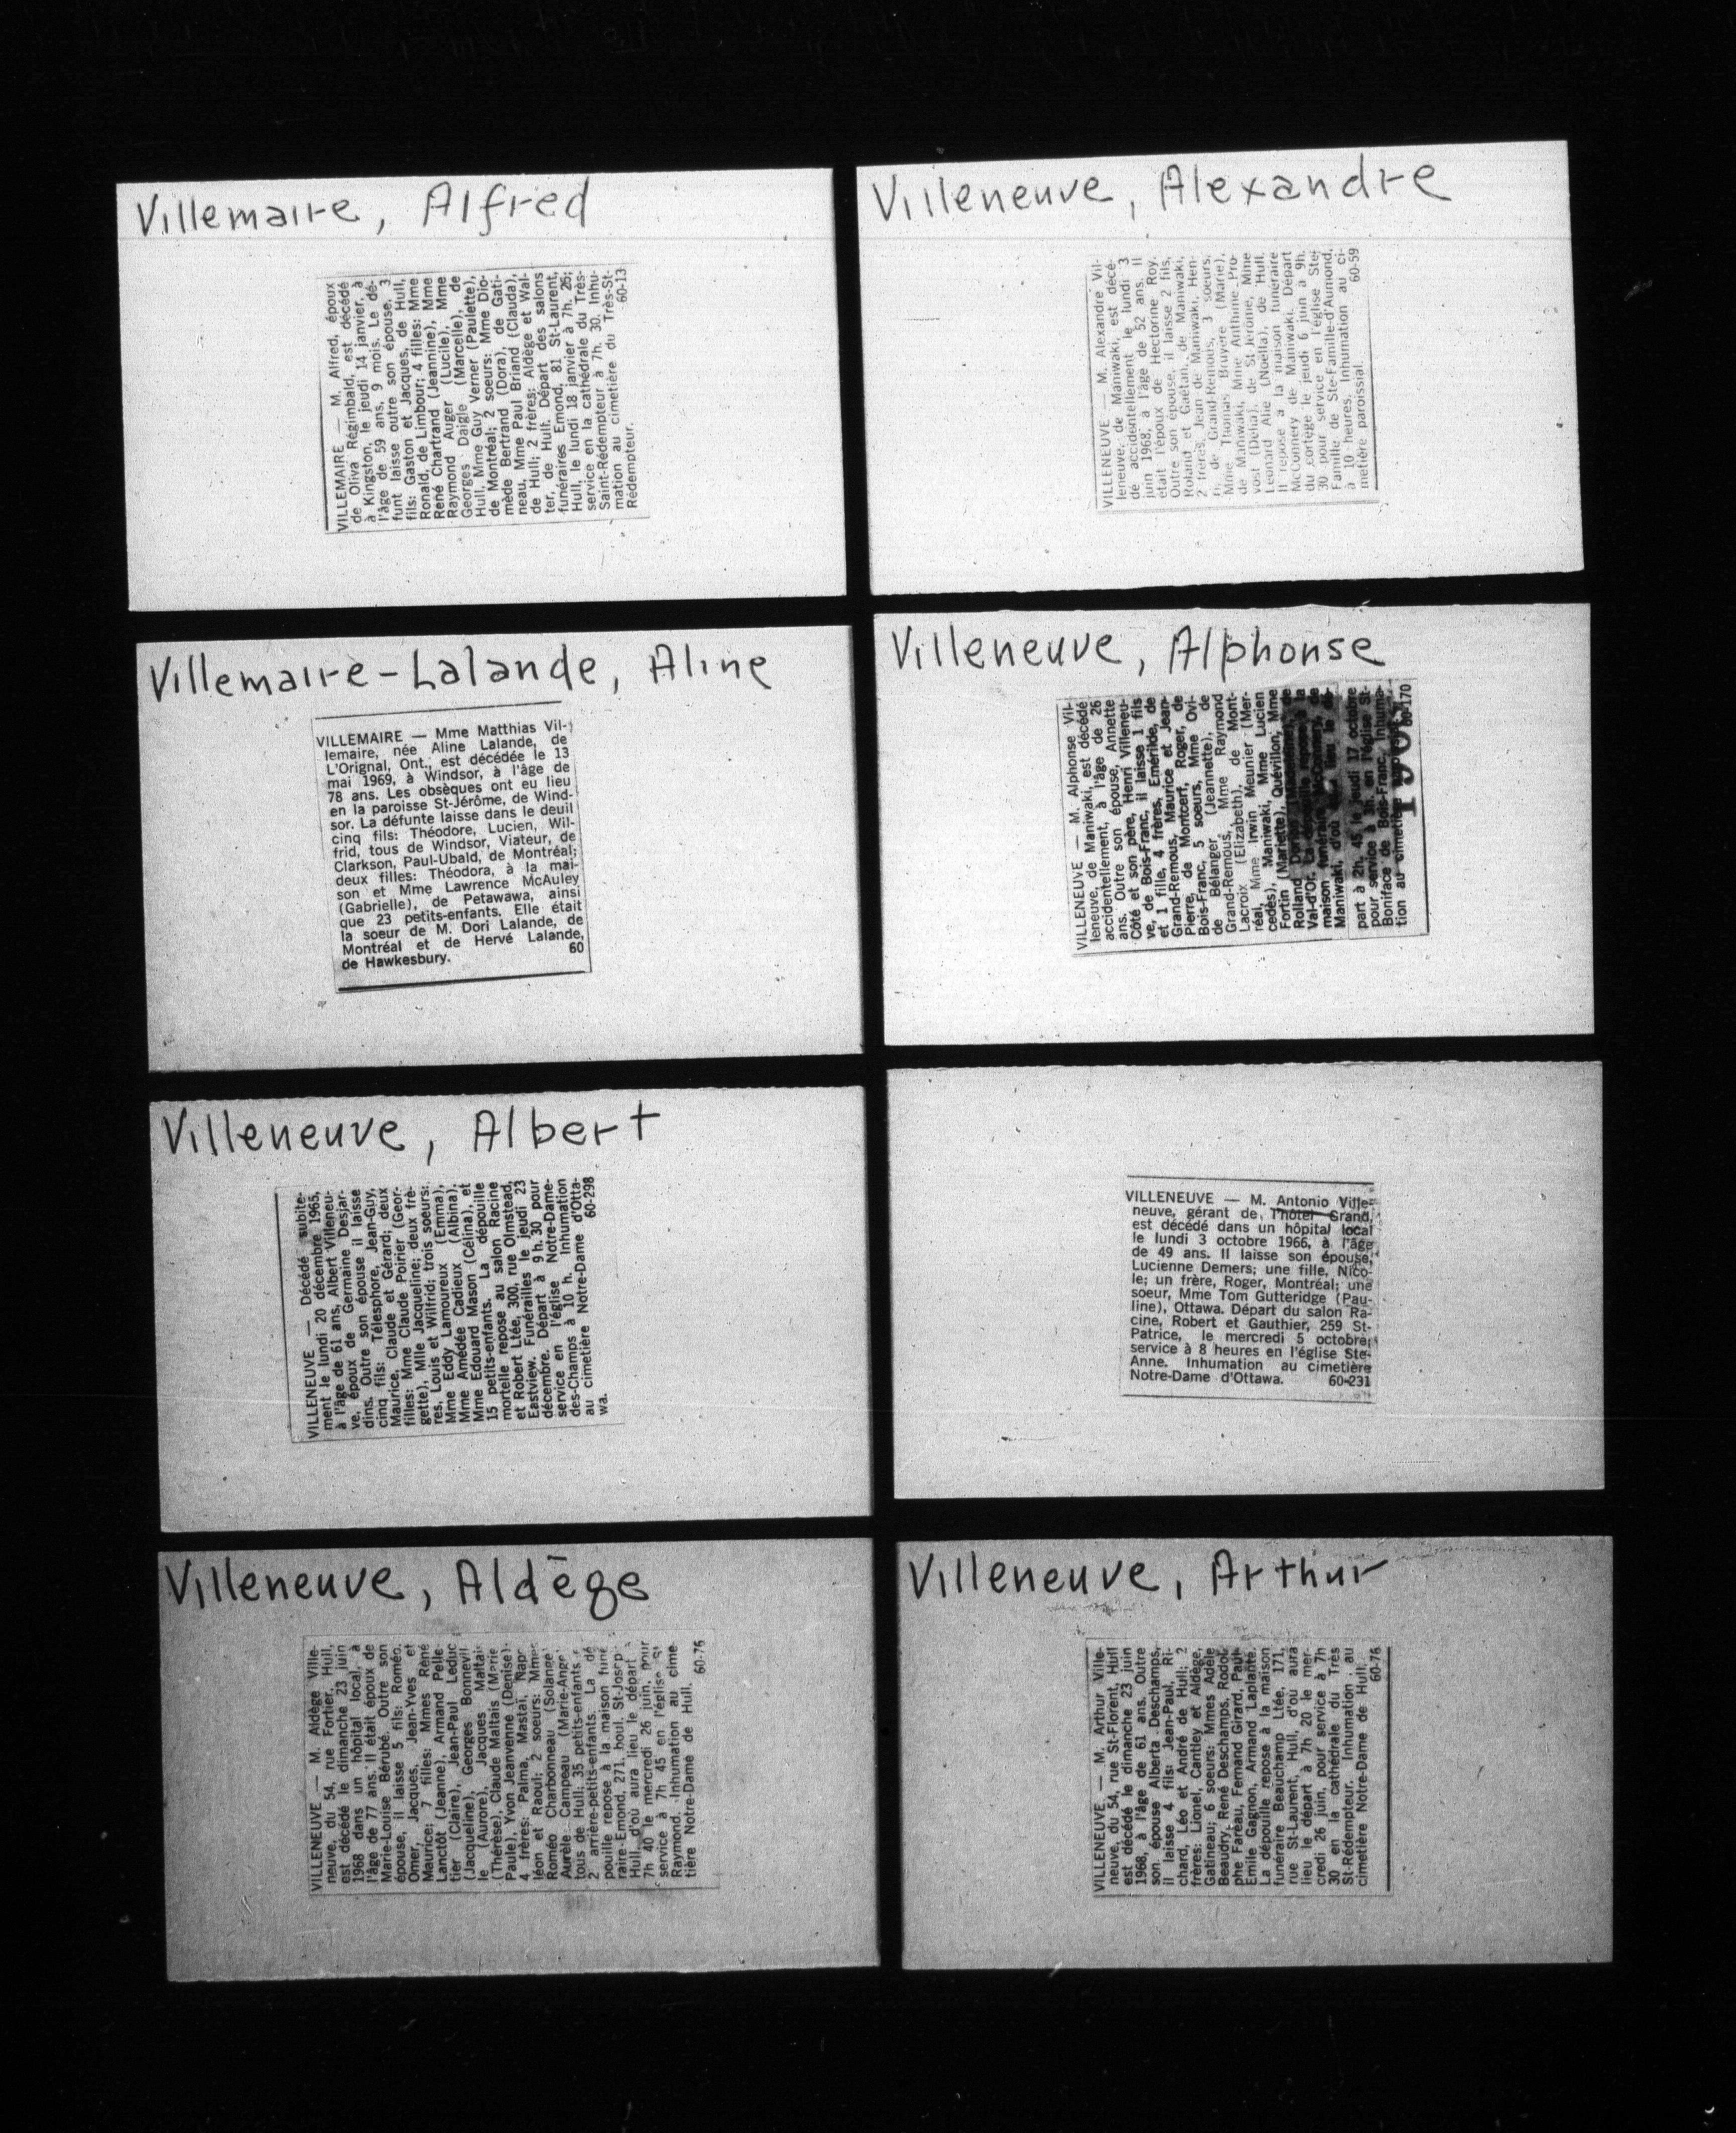 Villemaire, Alfred
VILLEMAIRE — M. Alfred, époux
de Oliva Régimbald, est décédé
à Kingston, le jeudi 14 janvier, à
l'âge de 59 ans, 9 mois. Le dé-
funt laisse outre son épouse, 3
fils: Gaston et Jacques, de Hull,
Ronald, de Limbour; 4 filles: Mme
René Chartrand (Jeannine), Mme
Raymond Auger (Lucile), Mme
Georges Daigle (Marcelle), de
Hull, Mme Guy Verner (Paulette),
de Montréal; 2 soeurs: Mme Dio-
mède Bertrand (Dora), de Gati-
neau, Mme Paul Briand (Clauda),
de Hull; 2 frères: Aldège et Wal-
ter, de Hull. Départ des salons
funéraires Emond, 81 St-Laurent,
Hull, le lundi 18 janvier à 7h. 26;
service en la cathédrale du Très-
Saint-Rédempteur à 7h. 30. Inhu-
mation au cimetière du Très-St-
Rédempteur. 60-13
Villemaire-Lalande, Aline
VILLEMAIRE — Mme Matthias Vil-
lemaire, née Aline Lalande, de
L'Orignal, Ont., est décédée le 13
mai 1969, à Windsor, à l'âge de
78 ans. Les obsèques ont eu lieu
en la paroisse St-Jérôme, de Wind-
sor. La défunte laisse dans le deuil
cinq fils: Théodore, Lucien, Wil-
frid, tous de Windsor, Viateur, de
Clarkson, Paul-Ubald, de Montréal;
deux filles: Théodora, à la mai-
son et Mme Lawrence McAuley
(Gabrielle), de Petawawa, ainsi
que 23 petits-enfants. Elle était
la soeur de M. Dori Lalande, de
Montréal et de Hervé Lalande,
de Hawkesbury. 60
Villeneuve, Albert
VILLENEUVE — Décédé subite-
ment le lundi 20 décembre 1965,
à l'âge de 61 ans, Albert Villeneu-
ve, époux de Germaine Desjar-
dins. Outre son épouse il laisse
cinq fils: Télesphore, Jean-Guy,
Maurice, Claude et Gérard; deux
filles: Mme Claude Poirier (Geor-
gette), Mlle Jacqueline; deux frè-
res, Louis et Wilfrid; trois soeurs:
Mme Eddy Lamoureux (Emma),
Mme Amédée Cadieux (Albina),
Mme Edouard Mason (Célina), et
15 petits-enfants. La dépouille
mortelle repose au salon Racine
et Robert Ltée, 300, rue Olmstead,
Eastview. Funérailles le jeudi 23
décembre. Départ à 9 h. 30 pour
service en l'église Notre-Dame-
des-Champs à 10 h. Inhumation
au cimetière Notre-Dame d'Otta-
wa. 60-298
Villeneuve, Aldège
VILLENEUVE — M. Aldège Ville-
neuve, du 54, rue Fortier, Hull,
est décédé le dimanche 23 juin
1968 dans un hôpital local, à
l'âge de 77 ans. Il était époux de
Marie-Louise Bérubé. Outre son
épouse, il laisse 5 fils: Roméo,
Omer, Jacques, Jean-Yves et
Maurice; 7 filles: Mmes René
Lanctôt (Jeanne), Armand Pelle-
tier (Claire), Jean-Paul Leduc
(Jacqueline), Georges Bonnevil-
le (Aurore), Jacques Maltais
(Thérèse), Claude Maltais (Marie
Paule), Yvon Jeanvenne (Denise);
4 frères: Palma, Mastaï, Napo-
léon et Raoul; 2 soeurs: Mmes
Roméo Charbonneau (Solange),
Aurèle Campeau (Marie-Ange)
tous de Hull; 35 petits-enfants
2 arrière-petits-enfants. La dé
pouille repose à la maison funé
raire Emond, 271, boul. St-Joseph
Hull, d'où aura lieu le départ
7h 40 le mercredi 26 juin, pour
service à 7h 45 en l'église St
Raymond. Inhumation au cime
tière Notre-Dame de Hull. 60-76
Villeneuve, Alexandre
VILLENEUVE — M. Alexandre Vil-
leneuve, de Maniwaki, est décé-
dé accidentellement le lundi 3
juin 1968, à l'âge de 52 ans. Il
était l'époux de Hectorine Roy.
Outre son épouse, il laisse 2 fils,
Roland et Gaétan, de Maniwaki,
2 frères, Jean de Maniwaki, Hen-
ri, de Grand-Remous, 3 soeurs,
Mme Thomas Bruyère (Marie),
de Maniwaki, Mme Anthime Pro-
vost (Délia), de St-Jérôme, Mme
Léonard Alie (Noëlla), de Hull.
Il repose à la maison funéraire
McConnery de Maniwaki. Départ
du cortège le jeudi 6 juin à 9h.
30 pour service en l'église Ste-
Famille de Ste-Famille-d'Aumond,
à 10 heures. Inhumation au ci-
metière paroissial. 60-59
Villeneuve, Alphonse
VILLENEUVE — M. Alphonse Vil-
leneuve, de Maniwaki, est décédé
accidentellement, à l'âge de 26
ans. Outre son épouse, Annette
Côté et son père, Henri Villeneu-
ve, de Bois-Franc, il laisse 1 fils
et 1 fille, 4 frères, Emérilde, de
Grand-Remous, Maurice et Jean-
Pierre, de Montcerf, Roger, de
Bois-Franc, 5 soeurs, Mme Ovi-
de Bélanger (Jeannette), de
Grand-Remous, Mme Raymond
Lacroix (Elizabeth), de Mont-
réal, Mme Irwin Meunier (Mer-
cedès), Maniwaki, Mme Lucien
Fortin (Mariette), Quévillon, Mme
Rolland de
Val-d'Or. La dépouille repose à la
maison funéraire McConnery, de
Maniwaki, d'où lieu le dé-
part à 2h. 45 le jeudi 17 octobre
pour service à 3h. en l'église St-
Boniface de Bois-Franc. Inhuma-
tion au cimetière 60-170
VILLENEUVE — M. Antonio Ville-
neuve, gérant de l'hôtel Grand,
est décédé dans un hôpital local
le lundi 3 octobre 1966, à l'âge
de 49 ans. Il laisse son épouse,
Lucienne Demers; une fille, Nico-
le; un frère, Roger, Montréal; une
soeur, Mme Tom Gutteridge (Pau-
line), Ottawa. Départ du salon Ra-
cine, Robert et Gauthier, 259 St-
Patrice, le mercredi 5 octobre;
service à 8 heures en l'église Ste-
Anne. Inhumation au cimetière
Notre-Dame d'Ottawa. 60-231
Villeneuve, Arthur
VILLENEUVE — M. Arthur Ville-
neuve, du 54, rue St-Florent, Hull
est décédé le dimanche 23 juin
1968, à l'âge de 61 ans. Outre
son épouse Alberta Deschamps,
il laisse 4 fils: Jean-Paul, Ri-
chard, Léo et André de Hull; 2
frères: Lionel, Cantley et Aldège,
Gatineau; 6 soeurs: Mmes Adèle
Beaudry, René Deschamps, Rodol-
phe Faréau, Fernand Girard, Paul-
Emile Gagnon, Armand Laplante.
La dépouille repose à la maison
funéraire Beauchamp Ltée, 171,
rue St-Laurent, Hull, d'où aura
lieu le départ à 7h 20 le mer-
credi 26 juin, pour service à 7h
30 en la cathédrale du Très
St-Rédempteur. Inhumation au
cimetière Notre-Dame de Hull.
60-76